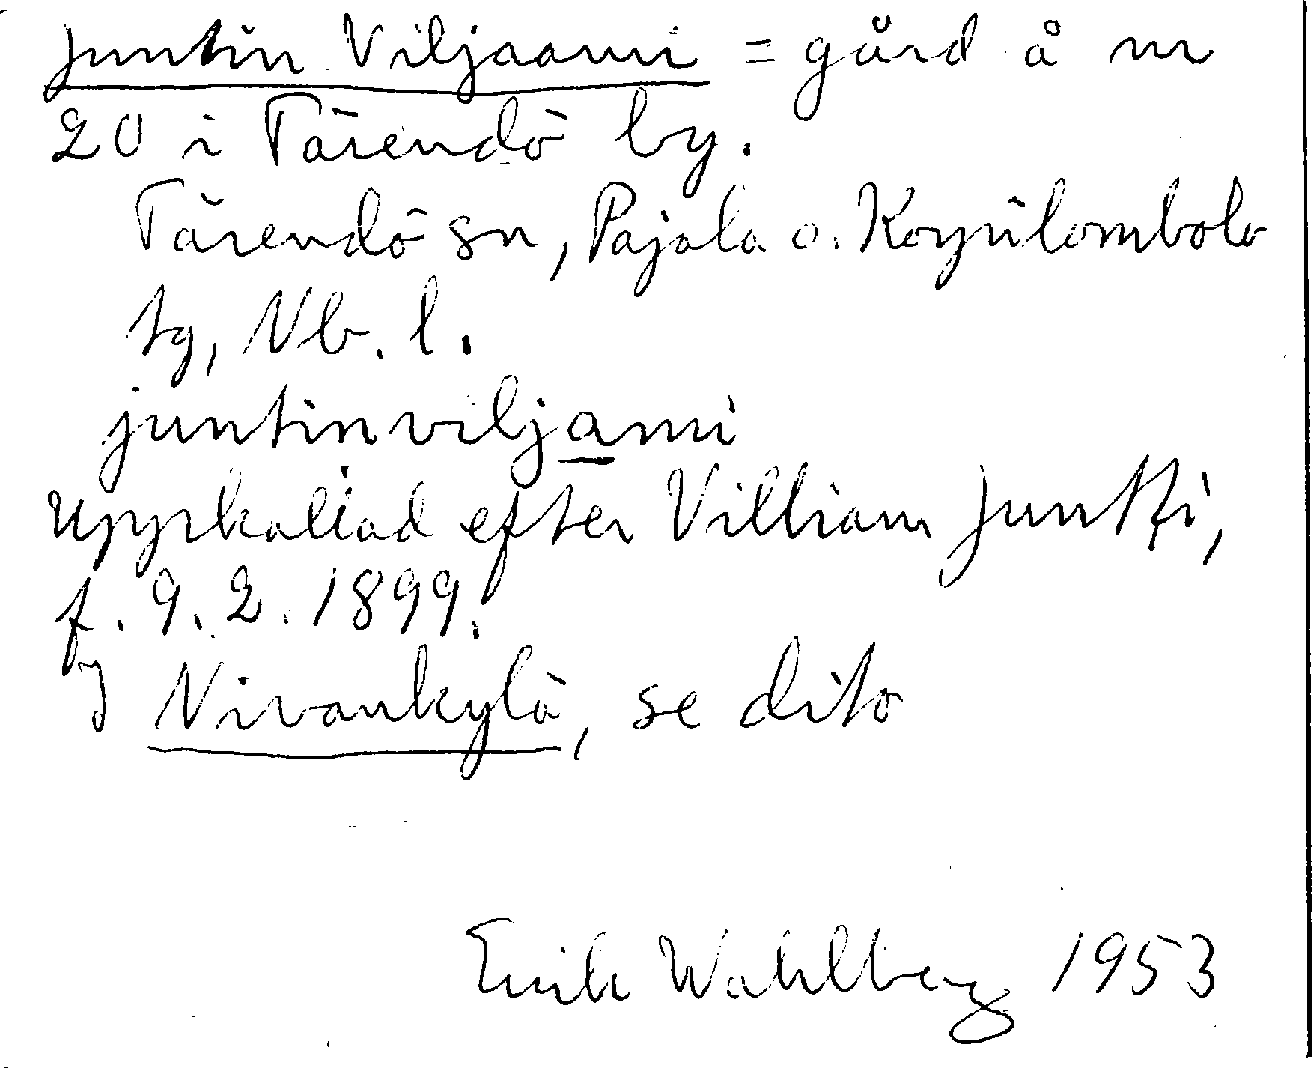 Juntin Viljaami = gård å nr
20 i Tärendö by.
Tärendö sn, Pajala o. Korpilombolo
tg, Nb. l.
juntinviljami
Uppkallad efter Villiam Juntti,
f. 9.2.1899.
I Nivankylä, se dito
Erik Wahlberg 1953